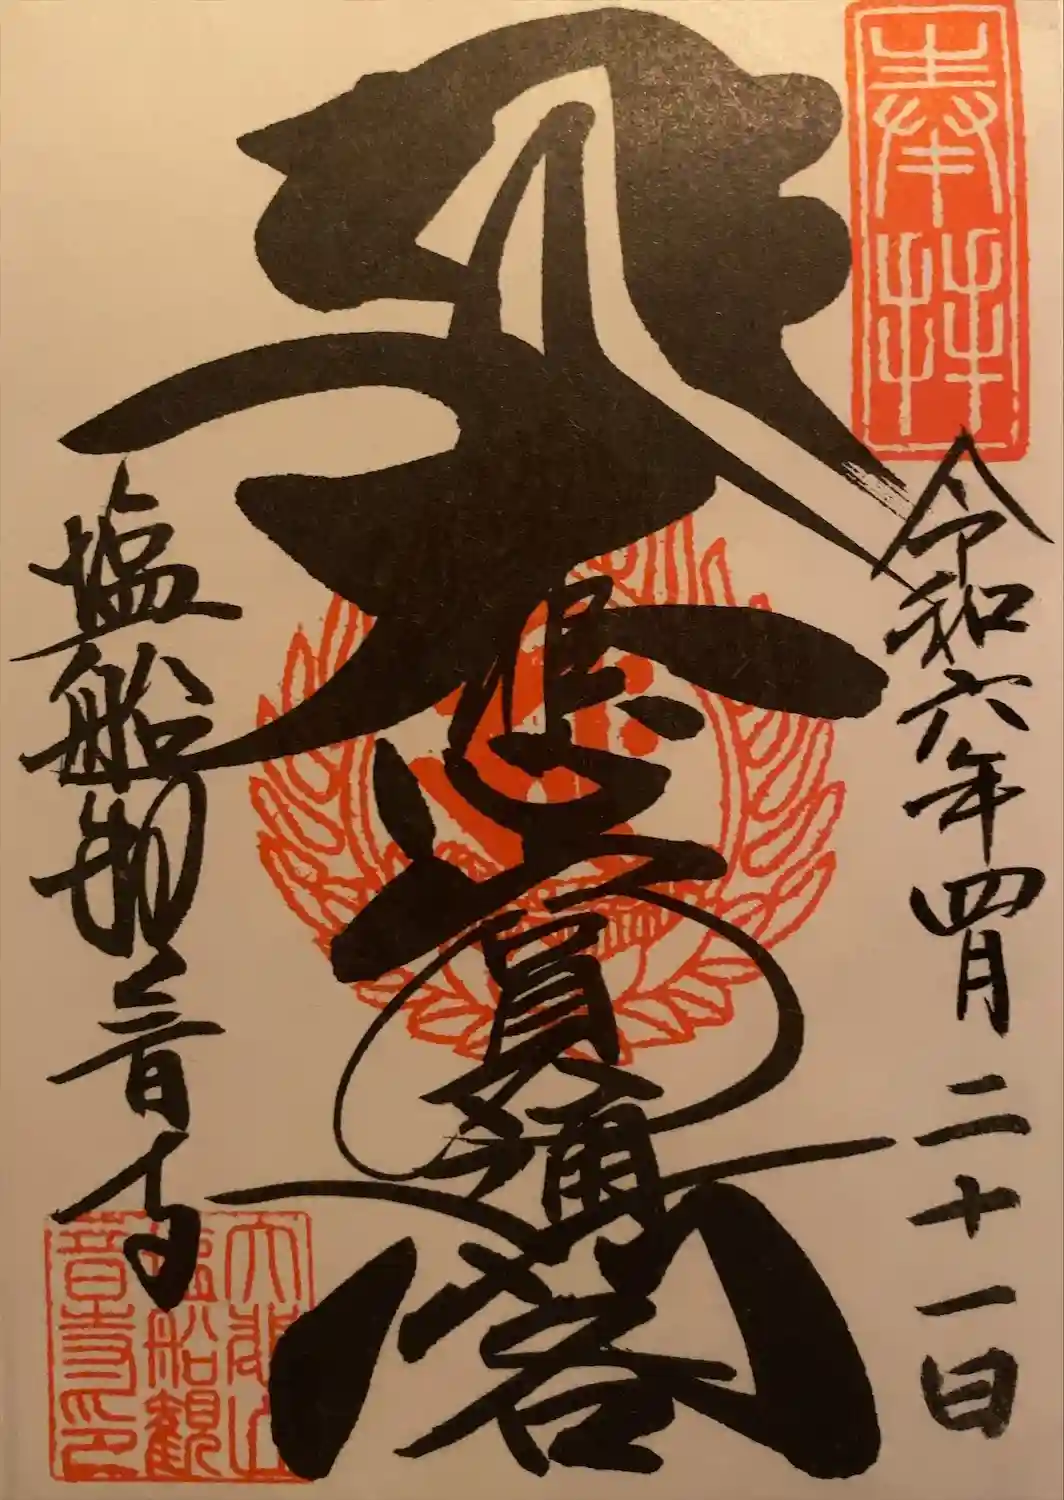 奉拝
令和六年四月二十一日
圓通閣
塩船観音寺
大悲山
塩船観
音寺印